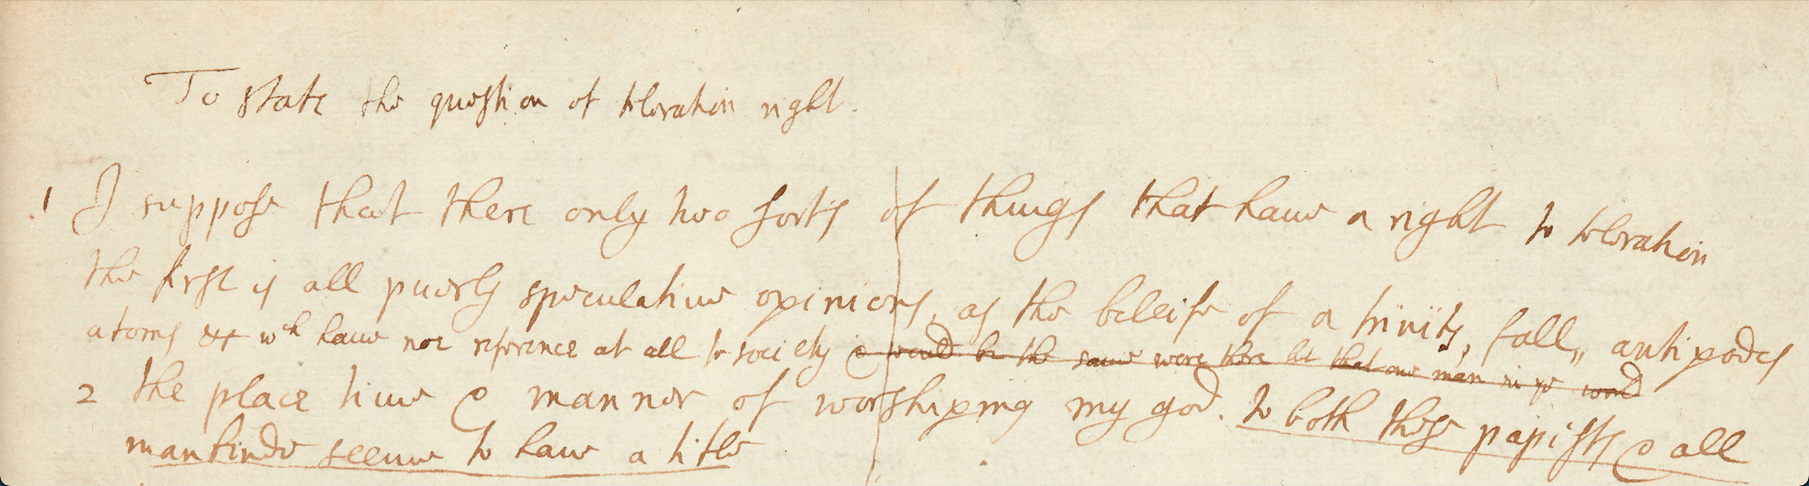 To state the question of toleration right.
1 I suppose that there only two sorts of things that have a right to toleration
the first is all puerly speculative opinions, as the beleife of a trinity, fall, antipodes
atoms &c wch have noe reference at all to society & would be the same were there but that one man in ye world
2 the place time & mannor of worshiping my god. to both these papists & all
mankinde seeme to have a title